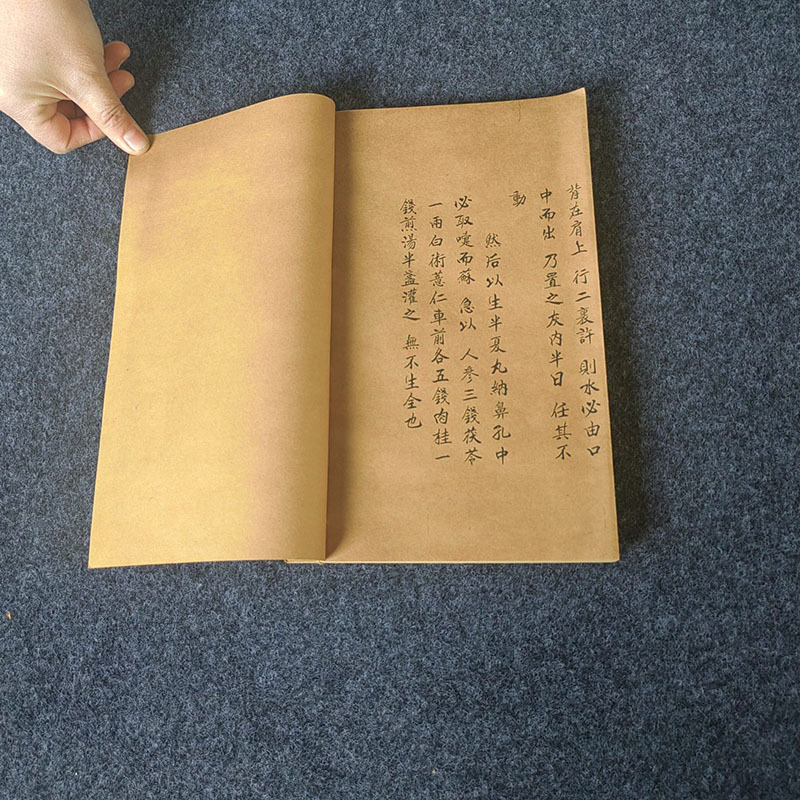 背在肩上 行二裏許 則水必由口
中而出 乃置之灰內半日 任其不
動
然后以生半夏丸納鼻孔中
必取嚏而蘇 急以 人參三錢茯苓
一兩白術薏仁車前各五錢肉桂一
錢煎湯半盞灌之 無不生全也